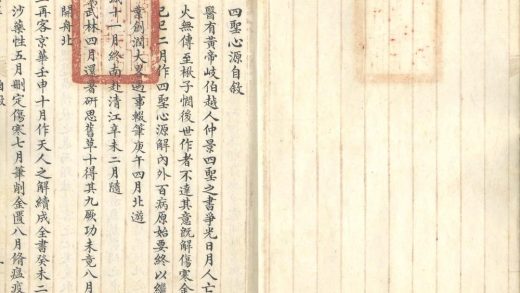 四聖心源自敘
醫有黃帝岐伯越人仲景四聖之書爭光日月人亡
火無傳玉楸子憫後世作者不達其意既解傷寒金
己巳二月作四聖心源解內外百病原始要終以繼
業創潤大畧遇事輟筆庚午四月北遊
十一月終南赴清江辛未二月隨
武林四月還署研思舊草十得其九厥功未竟八月
開舟北
再客京華壬申十月作天人之解續成全書癸未二
沙藥性五月刪定傷寒七月筆削金匱八月脩瘟疫
自敘